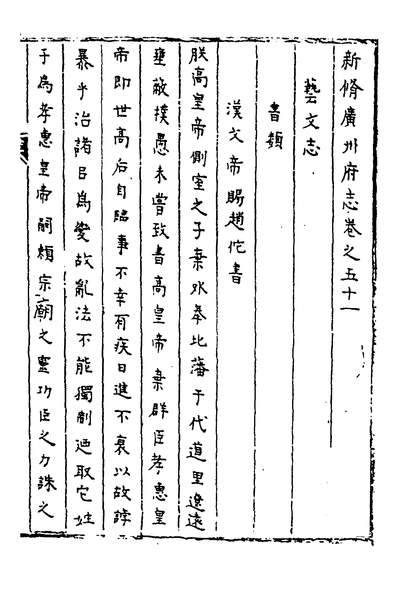 新脩廣州府志卷之五十一
藝文志
書類
漢文帝賜趙佗書
朕高皇帝側室之子棄外奉北藩于代道里遼遠
壅蔽撲愚未嘗致書高皇帝棄群臣孝惠皇
帝即世高后自臨事不幸有疾日進不衰以故誖
暴乎治諸吕為變故亂法不能獨制迺取它姓
子為孝惠皇帝嗣頼宗廟之靈功臣之力誅之